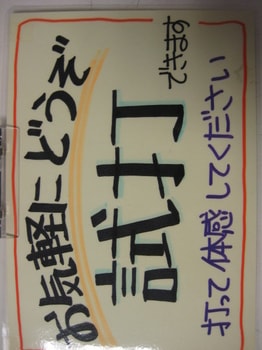 お気軽にどうぞ
試打できます
打って体感してください